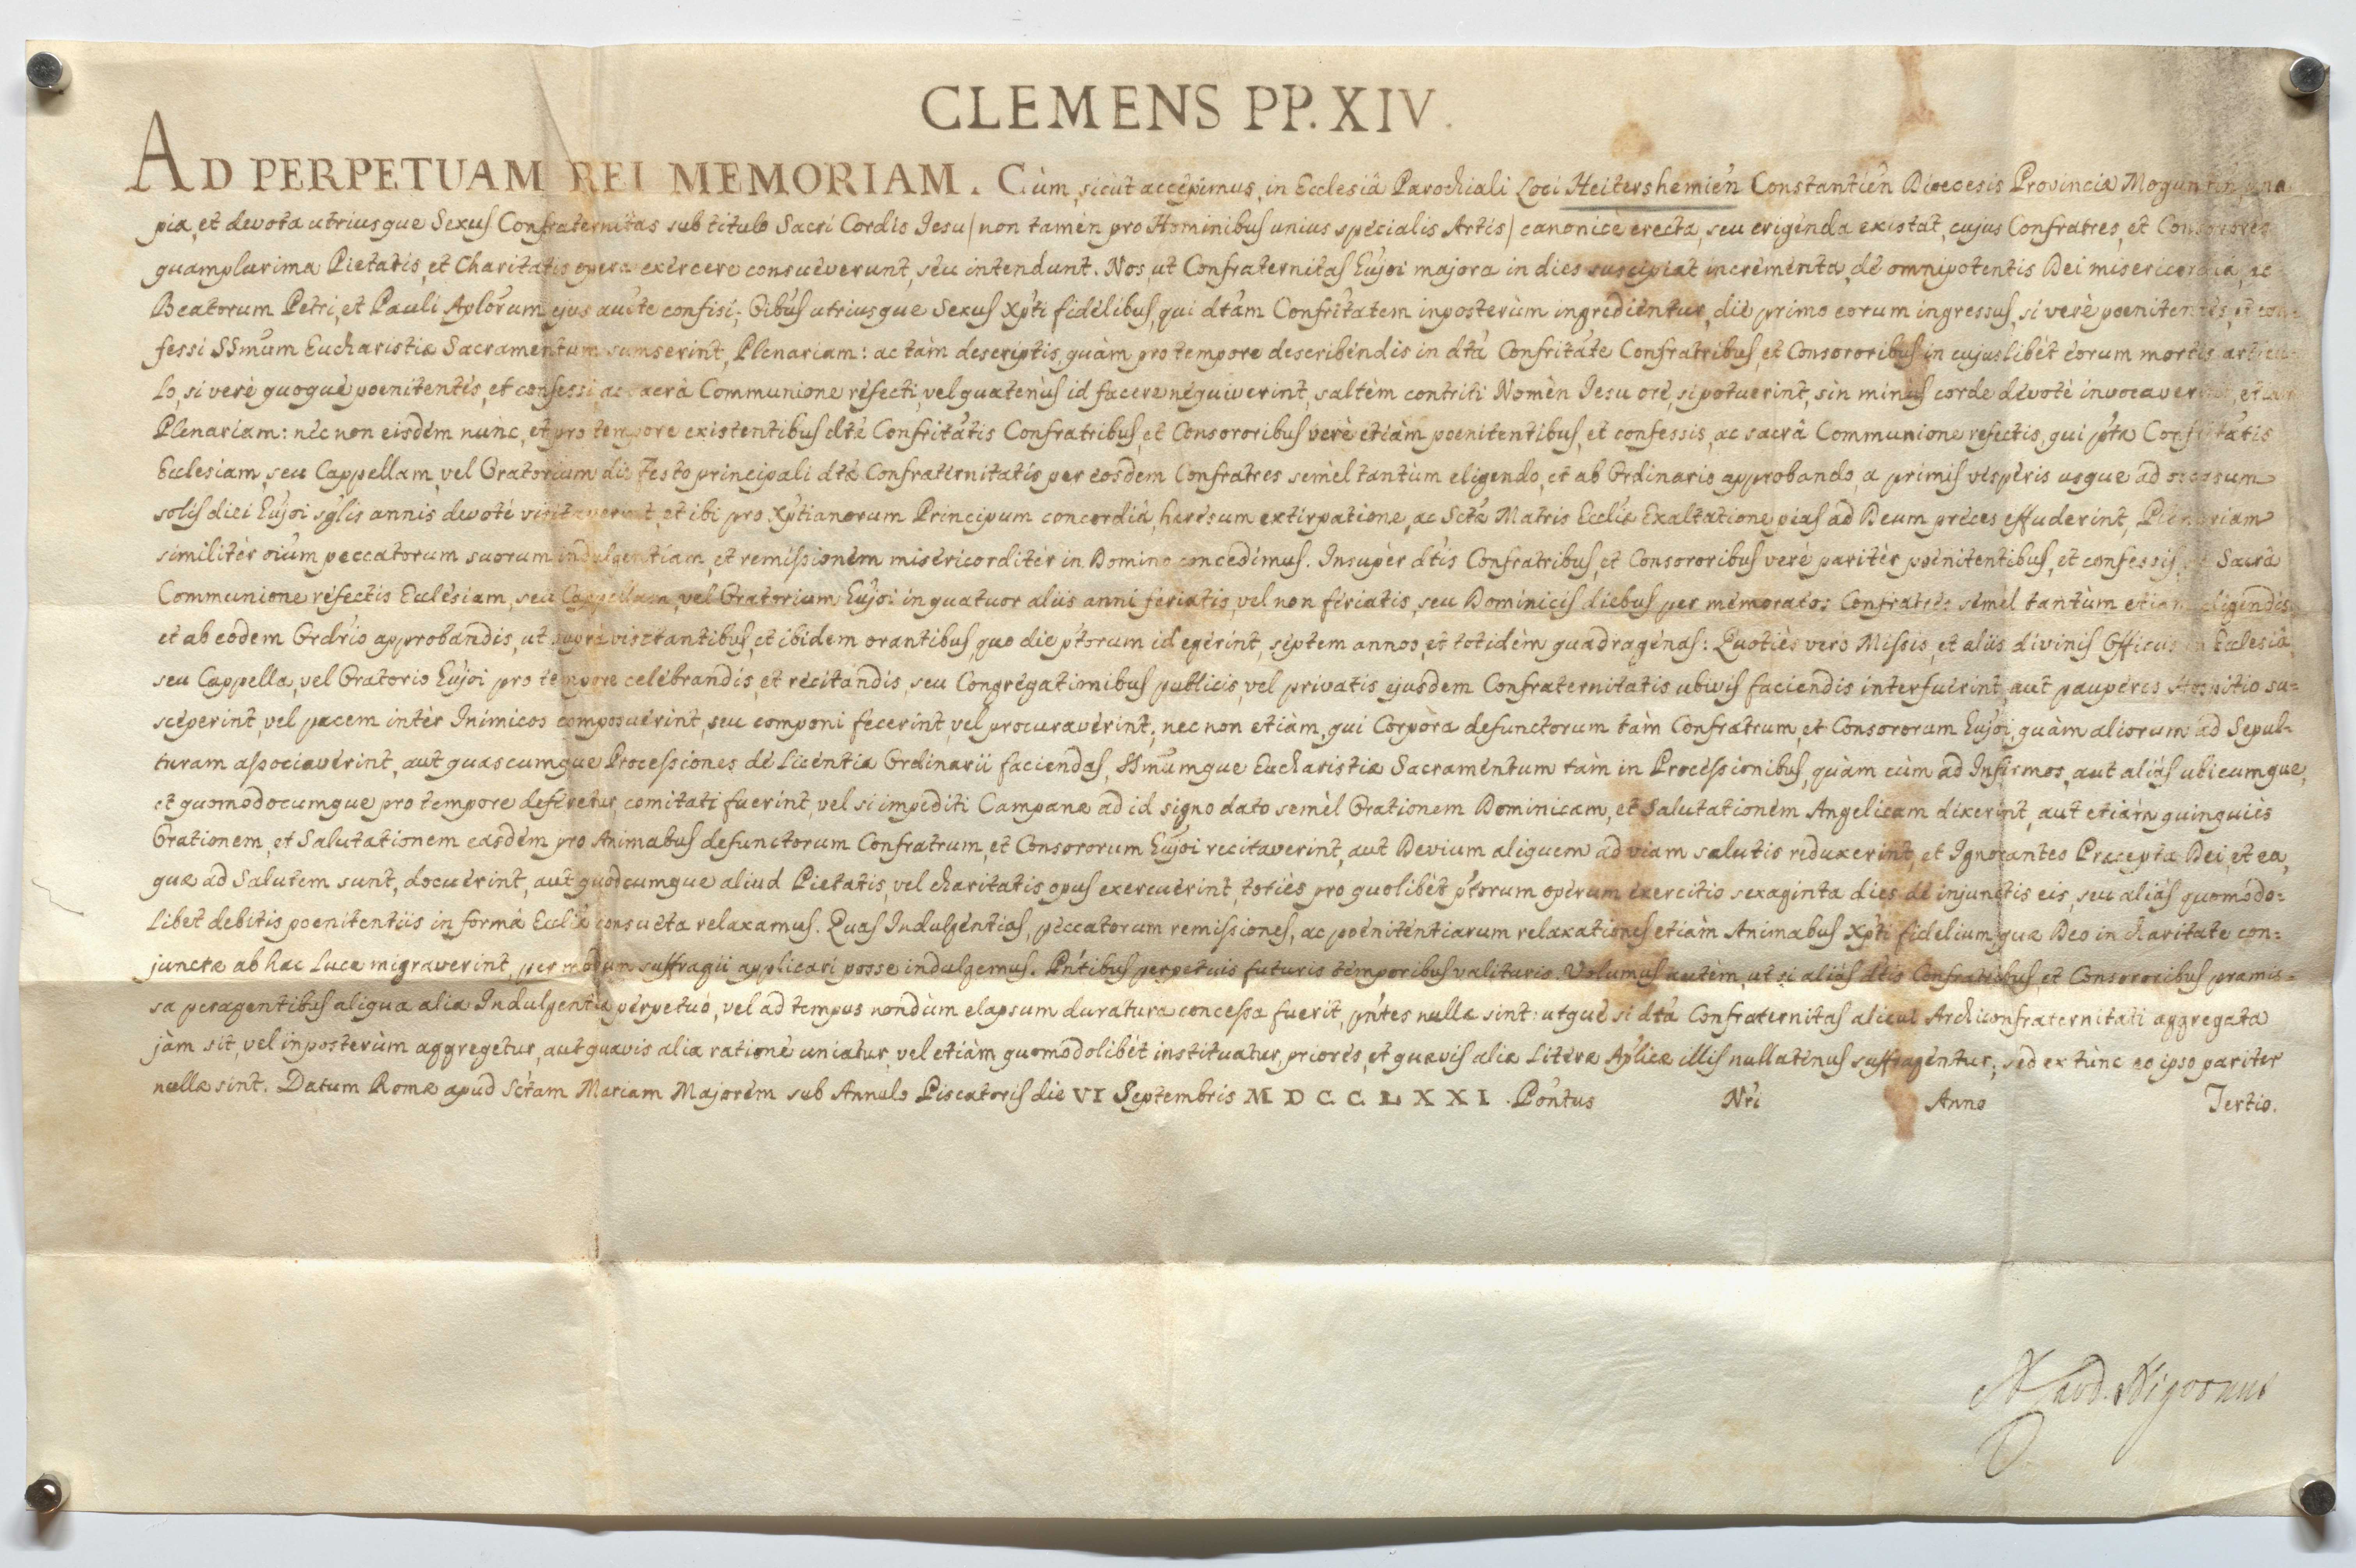 CLEMENS PP. XIV.
AD PERPETUAM REI MEMORIAM. Cùm, sicut accepimus, in Ecclesiâ Parochiali Loci Heitershemieñ Constantieñ Dioecesis Provinciæ Mogunt̃in una
pia, et devota utriusque Sexus Confraternitas sub titulo Sacri Cordis Iesu / non tamèn pro Hominibus unius specialis Artis / canonicè erecta, seu erigenda existat, cujus Confratres, et Consorores
quamplurima Pietatis, et Charitatis opera exercere consueverunt, seu intendunt. Nos, ut Confraternitas Eujõi majora in dies suscipiat incrementa, de omnipotentis Dei misericordiâ, ac
Beatorum Petri, et Pauli Aplõrum ejus auc̃te confisi; Oĩbus utriusque Sexus Xp̃ti fidelibus, qui dtãm Confrĩtatem inposterùm ingredientur, die primo eorum ingressus, si verè poenitentes, et con-
fessi SSm̃um Eucharistiæ Sacramentum sumserint, Plenariam: ac tàm descriptis, quàm pro tempore describendis in dtã Confritãte Confratribus, et Consororibus in cujuslibet eorum mortis articu-
lo, si verè quoquè poenitentes, et confessi, ac sacrâ Communione refecti, vel quatenùs id facere nequiverint, saltèm contriti Nomèn Iesu ore, si potuerint, sin minùs corde devotè invocaverint, etiàm
Plenariam: nec non eisdem nunc, et pro tempore existentibus dtæ Confritãtis Confratribus, et Consororibus verè etiàm poenitentibus, et confessis, ac sacrâ Communione refectis, qui pt̃æ Confritãtis
Ecclesiam, seu Cappellam, vel Oratorium die Festo principali dtæ Confraternitatis per eosdem Confratres semèl tantùm eligendo, et ab Ordinario approbando, a primis vesperis usque ad occasum
solis diei Eujõi sgl̃is annis devotè visitaverint, et ibi pro Xp̃tianorum Principum concordiâ, heresum extirpatione, ac Sctæ Matris Eccl̃iæ Exaltatione pias ad Deum preces effuderint, Plenariam
similitèr oĩum peccatorum suorum indulgentiam, et remissionem misericorditèr in Domino concedimus. Insupèr dtĩs Confratribus, et Consororibus verè paritèr poenitentibus, et confessis, ac Sacrâ
Communione refectis Ecclesiam, seu Cappellam, vel Oratorium Eujõi in quatuor aliis anni feriatis, vel non feriatis, seu Dominicis diebus per memoratos Confratres semèl tantùm etiam eligendis,
et ab eodem Ordrĩo approbandis, ut suprà visitantibus, et ibidem orantibus, quo die pt̃orum id egerint, septem annos, et totidèm quadragenas: Quotiès verò Missis, et aliis divinis Officiis in Ecclesiâ,
seu Cappella, vel Oratorio Eujõi pro tempore celebrandis, et recitandis, seu Congregationibus publicis, vel privatis ejusdem Confraternitatis ubivis faciendis interfuerint, aut pauperes Hospitio su=
sceperint, vel pacem intèr Inimicos composuerint, seu componi fecerint, vel procuraverint; nec non etiàm, qui Corpora defunctorum tàm Confratrum, et Consororum Eujõi, quàm aliorum ad Sepul-
turam associaverint, aut quascumque Processiones de licentia Ordinarii faciendas, SSm̃umque Eucharistiæ Sacramentum tàm in Processionibus, quàm cùm ad Infirmos, aut aliàs ubicumque,
et quomodocumque pro tempore deferetur, comitati fuerint, vel si impediti Campanæ ad id signo dato semèl Orationem Dominicam, et Salutationem Angelicam dixerint, aut etiàm quinquiès
Orationem, et Salutationem easdem pro Animabus defunctorum Confratrum, et Consororum Eujõi recitaverint, aut Devium aliquem ad viam salutis reduxerint, et Ignorantes Præcepta Dei, et ea,
quæ ad Salutem sunt, docuerint, aut quodcumque aliud Pietatis, vel charitatis opus exercuerint, totiès pro quolibèt pt̃orum operum exercitio sexaginta dies de injunctis eis, seu aliàs quomodo=
libet debitis poenitentiis in formâ Eccliæ consueta relaxamus. Quas Indulgentias, peccatorum remissiones, ac poenitentiarum relaxationes etiàm Animabus Xp̃ti fidelium, quæ Deo in charitate con=
junctæ ab hac Luce migraverint, per modum suffragii applicari posse indulgemus. Pñtibus perpetuis futuris temporibus valituris. Volumus autèm, ut si aliàs dtĩs Confratribus et Consororibus præmis=
sa peragentibus aliqua alia Indulgentia perpetuò, vel ad tempus nondùm elapsum duratura concessa fuerit, pñtes nullæ sint: utquè si dtã Confraternitas alicui Archiconfraternitati aggregata
jàm sit, vel inposterùm aggregetur, aut quavis alia ratione uniatur, vel etiàm quomodolibèt instituatur, priores, et quævis aliæ Literæ Ap̃licæ illis nullatenùs suffragentur; sed ex tùnc eo ipso pariter
nullæ sint. Datum Romæ apud Sctam Mariam Majorem sub Annulo Piscatoris die VI Septembris MDCCLXXI. Pontus Nri Anno Tertio.